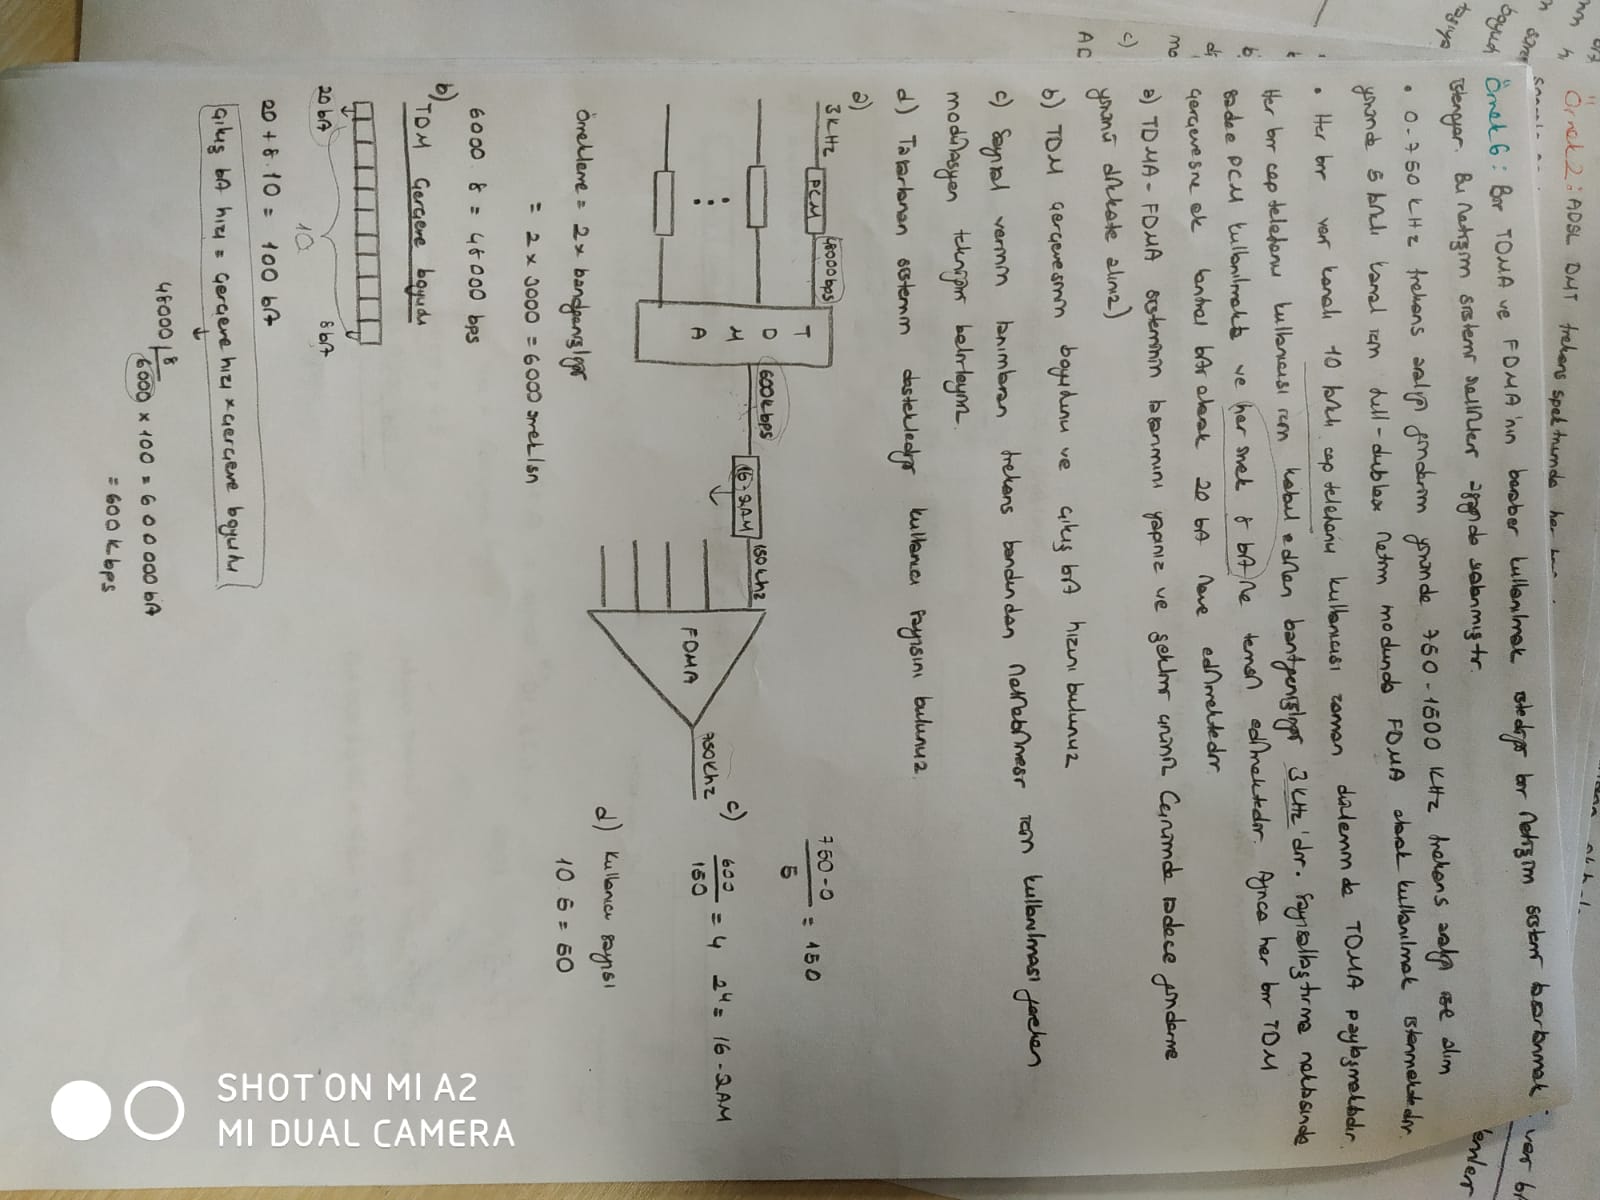 Örnek 2: ADSL DMT frekans spektrumda her
Örnek 6: Bir TDMA ve FDMA'nın beraber kullanılmak istediği bir iletişim sistemi tasarlanmak
isteniyor. Bu iletişim sistemi nitelikler aşağıda sıralanmıştır.
• 0-750 kHz frekans aralığı gönderim yönünde 750-1500 kHz frekans aralığı ise alım
yönünde 5 farklı kanal için full-dublex iletim modunda FDMA olarak kullanılmak istenmektedir.
• Her bir veri kanalı 10 farklı cep telefonu kullanıcısı zaman diliminde TDMA paylaşmaktadır.
Her bir cep telefonu kullanıcısı için kabul edilen bantgenişliği 3 kHz'dir. Sayısallaştırma noktasında
sadece PCM kullanılmakta ve her örnek 8 bit ile temsil edilmektedir. Ayrıca her bir TDM
çerçevesine ek kontrol bit olarak 20 bit ilave edilmektedir.
a) TDMA-FDMA sisteminin tasarımını yapınız ve şeklini çiziniz Çizimde sadece gönderme
yönünü dikkate alınız)
b) TDM çerçevesinin boyutunu ve çıkış bit hızını bulunuz
c) Sayısal verinin tanımlanan frekans bandından iletilebilmesi için kullanılması gereken
modülasyon tekniğini belirleyiniz.
d) Tasarlanan sistemin desteklediği kullanıcı sayısını bulunuz.
a)
3 kHz
PCM
48000 bps
T
D
M
A
600 kbps
16-QAM
150 khz
FDMA
750 khz
750-0 / 5 = 150
c) 600 / 150 = 4 2⁴ = 16-QAM
d) Kullanıcı sayısı
10.5 = 50
Örnekleme = 2 x bandgenişliği
= 2 x 3000 = 6000 örnek/sn
6000 . 8 = 48000 bps
b) TDM Çerçeve boyutu
20 bit
10
8 bit
20 + 8 . 10 = 100 bit
Çıkış bit hızı = Çerçeve hızı x Çerçeve boyutu
48000 | 8
6000 x 100 = 600000 bit
= 600 kbps
SHOT ON MI A2
MI DUAL CAMERA